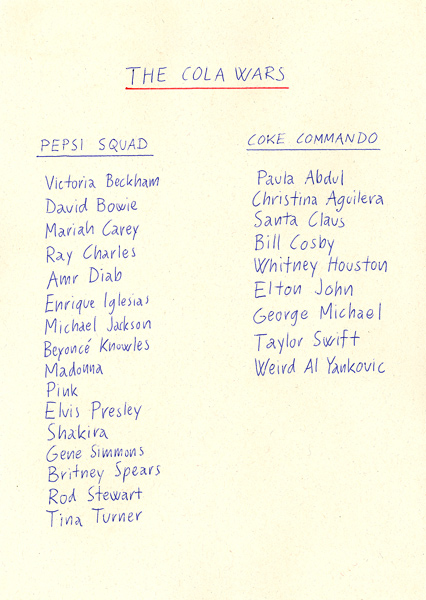 THE COLA WARS
PEPSI SQUAD
Victoria Beckham
David Bowie
Mariah Carey
Ray Charles
Amr Diab
Enrique Iglesias
Michael Jackson
Beyoncé Knowles
Madonna
Pink
Elvis Presley
Shakira
Gene Simmons
Britney Spears
Rod Stewart
Tina Turner
COKE COMMANDO
Paula Abdul
Christina Aguilera
Santa Claus
Bill Cosby
Whitney Houston
Elton John
George Michael
Taylor Swift
Weird Al Yankovic